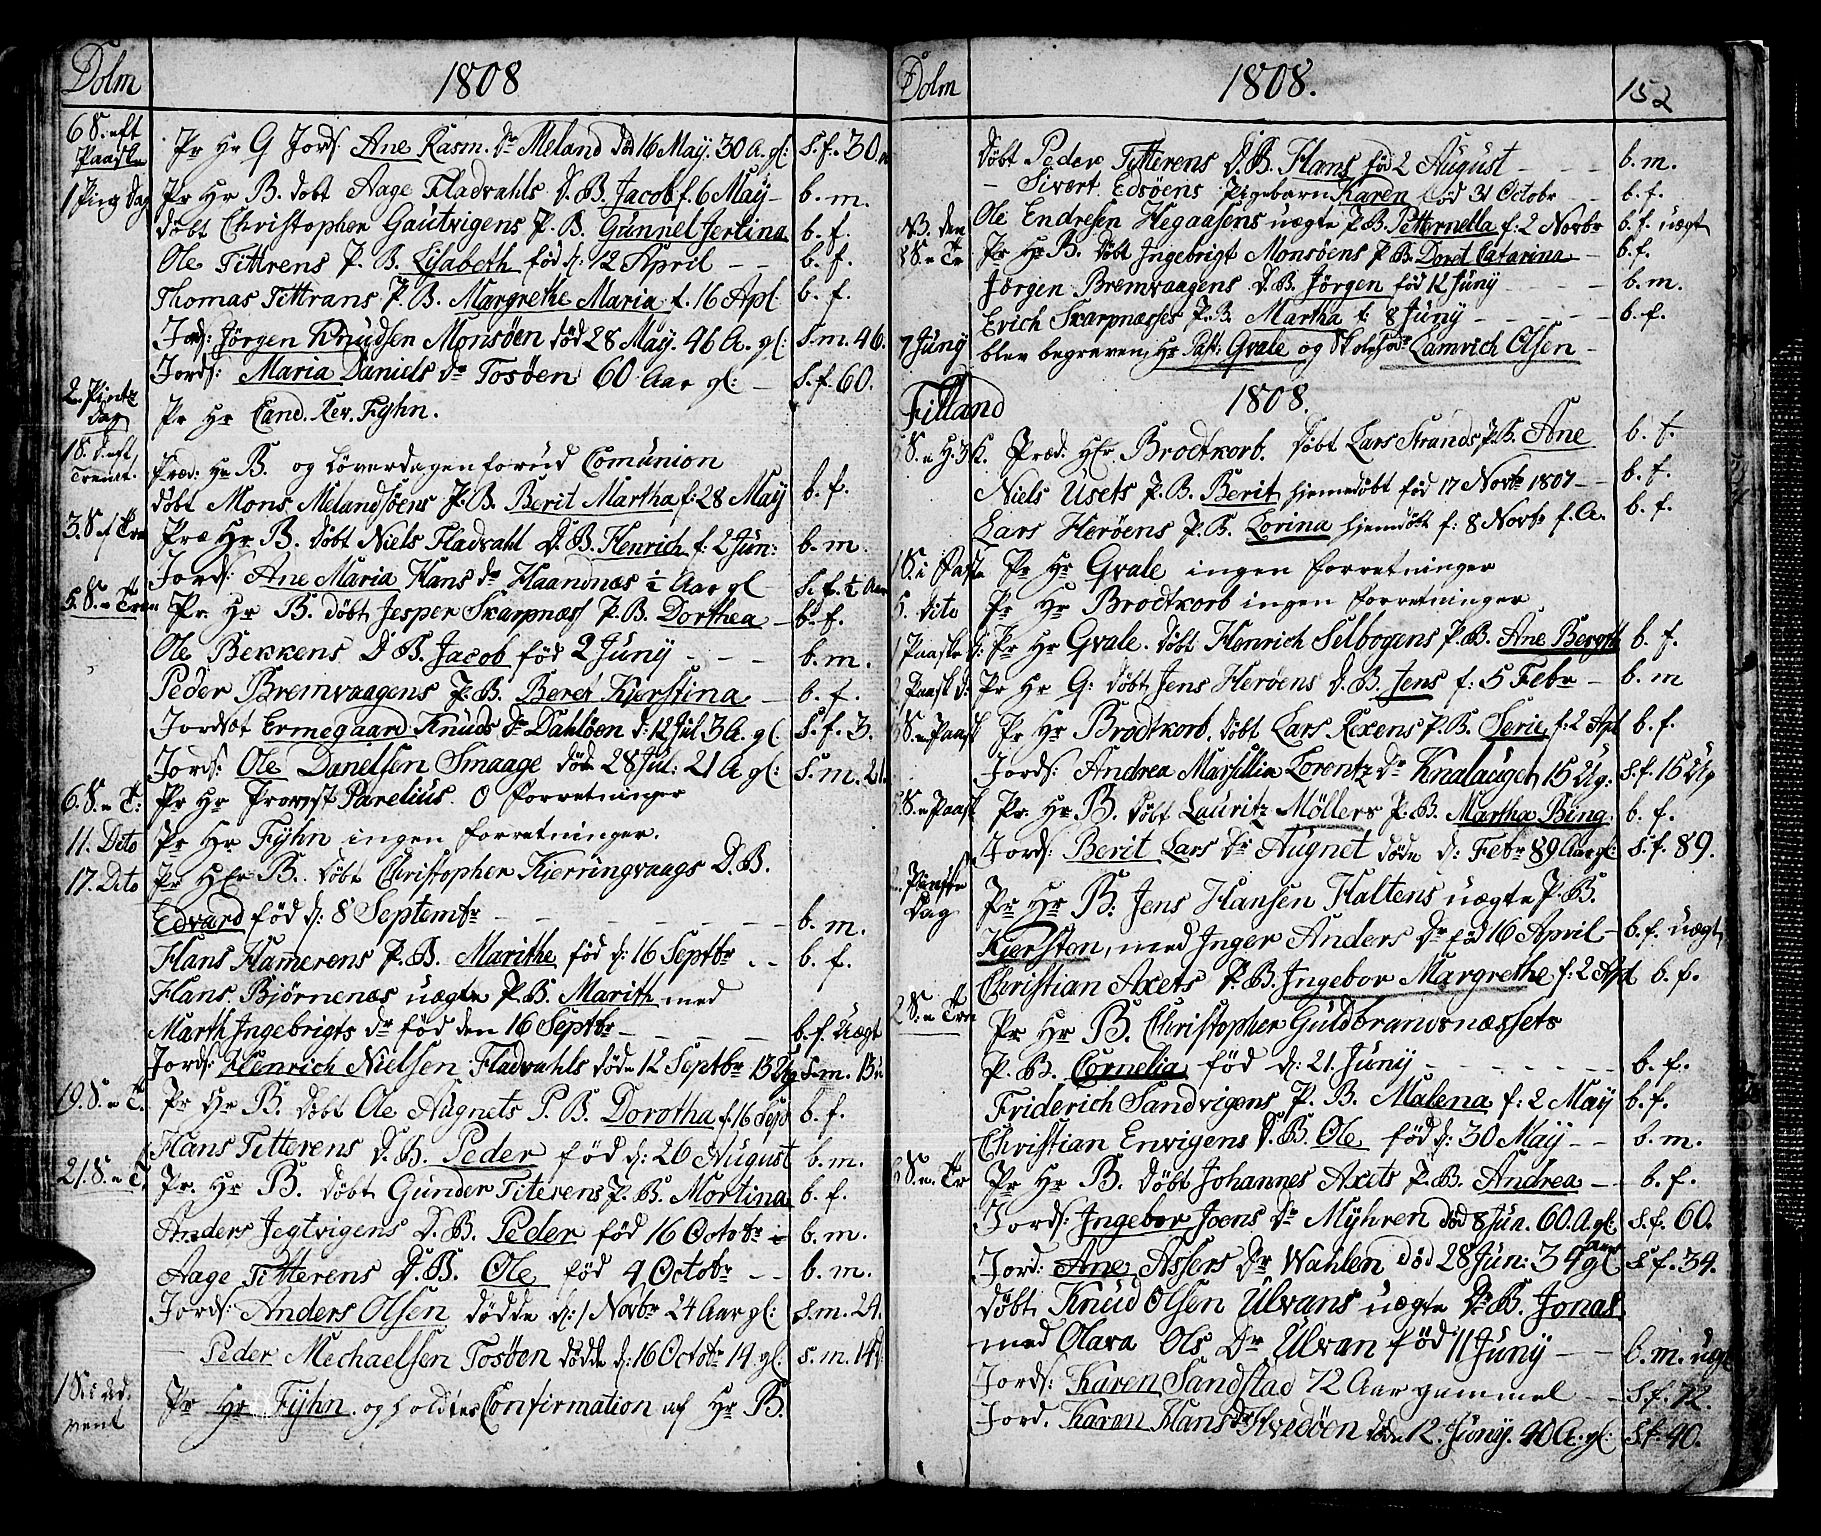 Dolm 1808
6 S. eft Pr Hr G Jords. Ane Rasm. Dr Meland død 16 May. 30 A. gl: S.f. 30
Paaske
1 Pins Dag Pr Hr B. døbt Aage Fladvahls D.B. Jacob f. 6 May b. m.
døbt Christopher Gautvigens P. B. Gunnel Jertina b. f.
Ole Tittrens P. B. Lisabeth fød d: 12 April b. f.
Thomas Tittrans P. B. Margrethe Maria f. 16 Apl b. f.
Jords: Jørgen Knudsen Monsøen død 28 May. 46 A. gl: S. m. 46.
Jords: Maria Daniels Dr Tosøen 60 Aar gl: S.f. 60.
2. Pintz
Dag Pr Hr Cand. Rev. Fyhn.
1 S. eft
Trenit. Præd: Hr B. og Løverdagen forud Comunion
døbt Mons Melandsøens P. B. Berit Martha f: 28 May b. f.
3. S. e Tre Præ Hr B. døbt Niels Fladvahl D. B. Henrich f: 2 Jun: b. m.
Jords: Ane Maria Hans Dr Haandnæs ½ Aar gl S. f. ½ Aar
5. S. e Tren Pr. Hr B. døbt Jesper Skarpnæs P. B. Dorthea b. f.
Ole Bekkens D B. Jacob fød 2 Juny b. m.
Peder Bremvaagens P. B. Beret Kjerstina b. f.
Jordsot Ermegaard Knuds Dr Dahløen d: 12 Jul 3 A. gl S. f. 3.
Jords: Ole Danelsen Smaage døde 28 Jul: 21 A gl: S. m. 21.
6. S. e T: Pr Hr Provest Parelius. 0 forretninger
11. Dito Pr Hr Fyhn ingen forretninger.
17. Dito Pr Hr B. døbt Christopher Kjerringvaags D. B.
Edvard fød d: 8 Septembr b. m.
Hans Hamerens P. B. Marithe fød d: 16 Septbr b. f.
Hans Bjørnenæs uægte P. B. Marith med
Marth Ingebrigts Dr fød den 16 Septbr b. f. Uægt
Jords: Henrich Nielsen Fladvahls døde 12 Septbr 13 Ug S. m. 13 u
19. S. e T. Pr Hr B. døbt Ole Augnets P. B. Dorotha f. 16 Sep b. f.
Hans Titterens D. B. Peder fød d: 26 August b. m.
21. S. e T. Pr. Hr B. døbt Gunder Titerens P. B. Mortina b. f.
Anders Jegtvigens D. B. Peder fød 16 Octobr b. m.
Aage Titterens D. B. Ole fød 4 Octobr b. m.
Jords: Anders Olsen dødde d: 1 Novbr 24 Aar gl: S. m. 24.
Peder Mechaelsen Tosøen dødde d: 16 Octobr 14. gl: S. m. 14
1 S. i Ad.
vent Pr Hr Fyhn og holdtes Confirmation af Hr B.
Dolm 1808. 152
døbt Peder Titterens D. B. Hans fød 2 August b. m.
Sivert Edsøens Pigebarn Karen fød 31 Octobr b. f.
NB. den Ole Endresen Hegaasens uægte P. B. Petternella f: 2 Novbr b. f. uægt
S. e Tr Pr Hr B. døbt Ingebrigt Monsøens P. B. Doret Catarina b. f.
Jørgen Bremvaagens D. B. Jørgen fød 12 Juny b. m.
Erich Skarpnæsses P. B. Martha f: 8 Juny b. f.
7 Juny blev begraven, Hr Past: Gvale og Lamvich Olsen
Filland 1808.
S. e H. 3 K. Præd. Hr. Brodtkorb. døbt Lars Strands P. B. Ane b. f.
Niels Usets P. B. Berit hjemedøbt fød 17 Novbr 1807 b. f.
Lars Herøens P. B. Lorina hjemedøbt f: 8 Novbr f. A. b. f.
1 S. i Faste Pr Hr Gvale ingen forretninger
5. dito Pr Hr Brodtkorb ingen forretninger
Paaske d: Pr Hr Gvale. døbt Henrich Selbogens P. B. Ane Bergth b. f.
2 Paask d: Pr Hr G: døbt Jens Herøens D. B. Jens f: 5 Febr b. m
S. e Paask Pr Hr Brodtkorb. døbt Lars Rexens P. B. Seric f: 2 Apl b. f.
Jords: Andrea Marsillia Lorentz Dr Knalauget 15 Ug: S. f. 15 Ug
S. e Paask Pr. Hr B. døbt Lauritz Möllers P. B. Martha Bing. b. f.
Jords: Berit Lars Dr Augnet døde d: Febr 89 Aar gl: S. f. 89.
Pinste
Dag Pr Hr B. Jens Hansen Haltens uægte P. B.
Kjersten, med Inger Anders Dr fød 16 April b. f. uægt
Christian Axets P. B. Ingebor Margrethe f: 2 Apl b. f.
2 S. e Tre Pr Hr B. Christopher Guldbrandsnæssets
P. B. Cornelia fød d: 21. Juny b. f.
Friderich Sandvigens P. B. Malena f: 2 May b. f.
Christian Envigens D. B. Ole fød d: 30 May b. m.
6 S. e. Tr Pr Hr B. døbt Johannes Axets P. B. Andrea b. f.
Jords: Ingebor Joens Dr Myhren død 8 Jun. 60. A. gl: S. f. 60.
Jord: Ane Assers Dr Wahlen død 28 Jun: 34 Aar gl S. f. 34.
døbt Knud Olsen Ulvans uægte D. B. Jonas
med Olava Ols Dr Ulvan fød 11 Juny b. m. uægt
Jords: Karen Sandstad 72 Aar gammel S. f. 72.
Jord. Karen Hans Dr Hvedøen døde 12. Juny. 40 A. gl: S. f. 40.